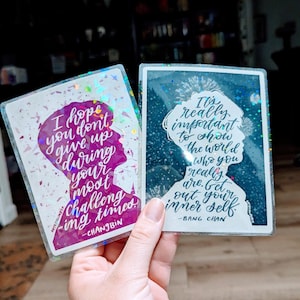 I hope
you don't
give up
during
your
most
challeng
-ing times.
-CHANGBIN
It's
really
important
to show
the world
who you
really
are. Let
out your
inner self
-BANG CHAN